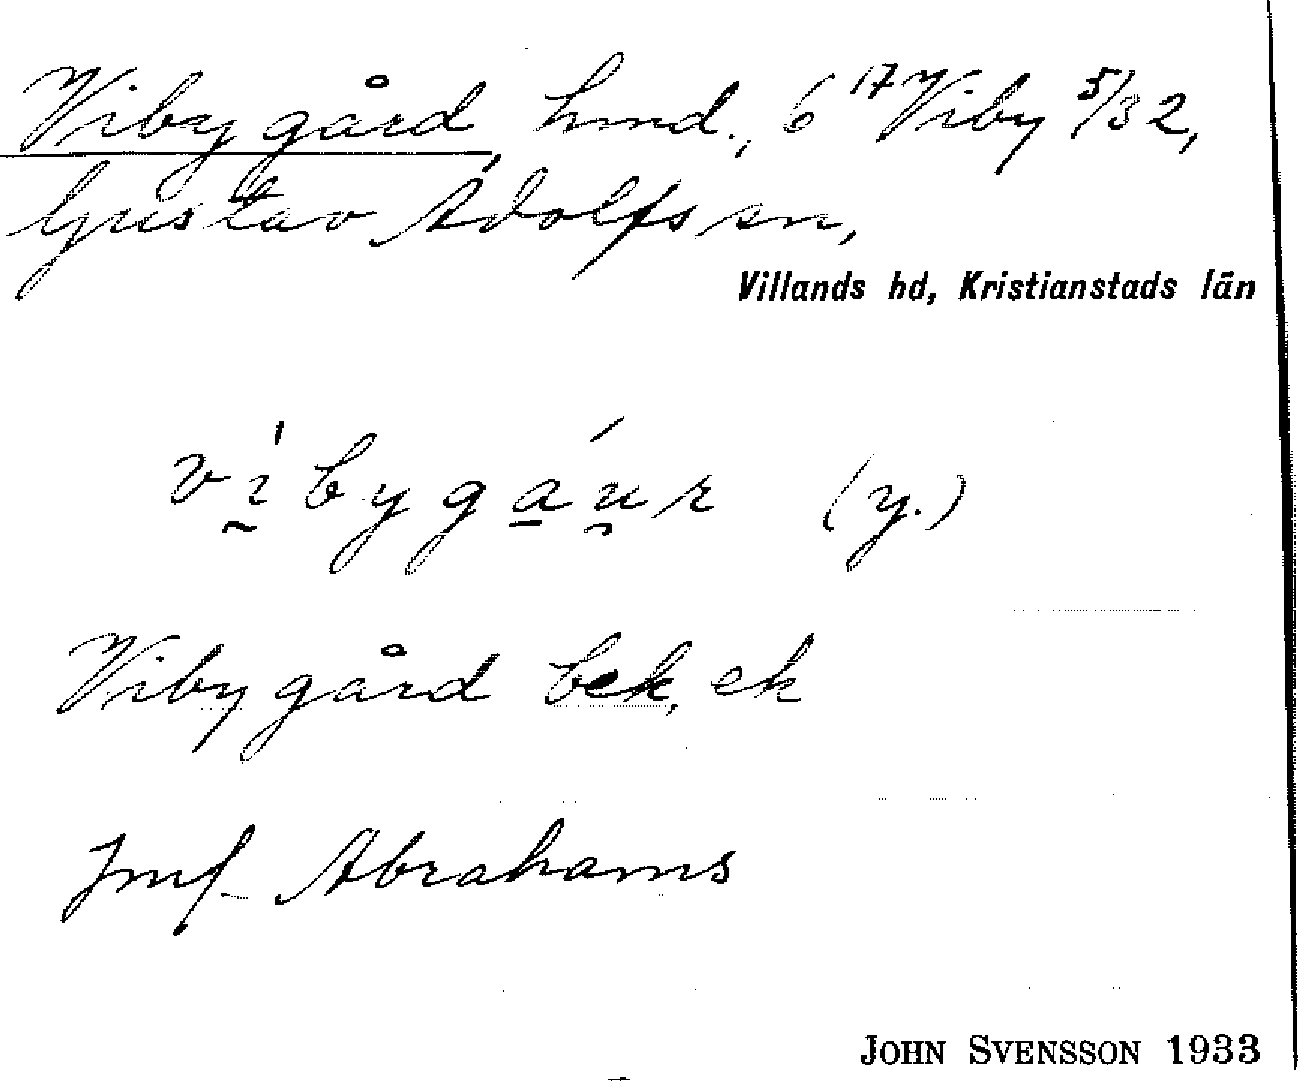 Vibygård, hmd., 6¹⁷ Viby 5/32,
Gustav Adolfs sn,
Villands hd, Kristianstads län
vìbygáur (y.)
Vibygård bek, ek
Jmf. Abrahams
JOHN SVENSSON 1933